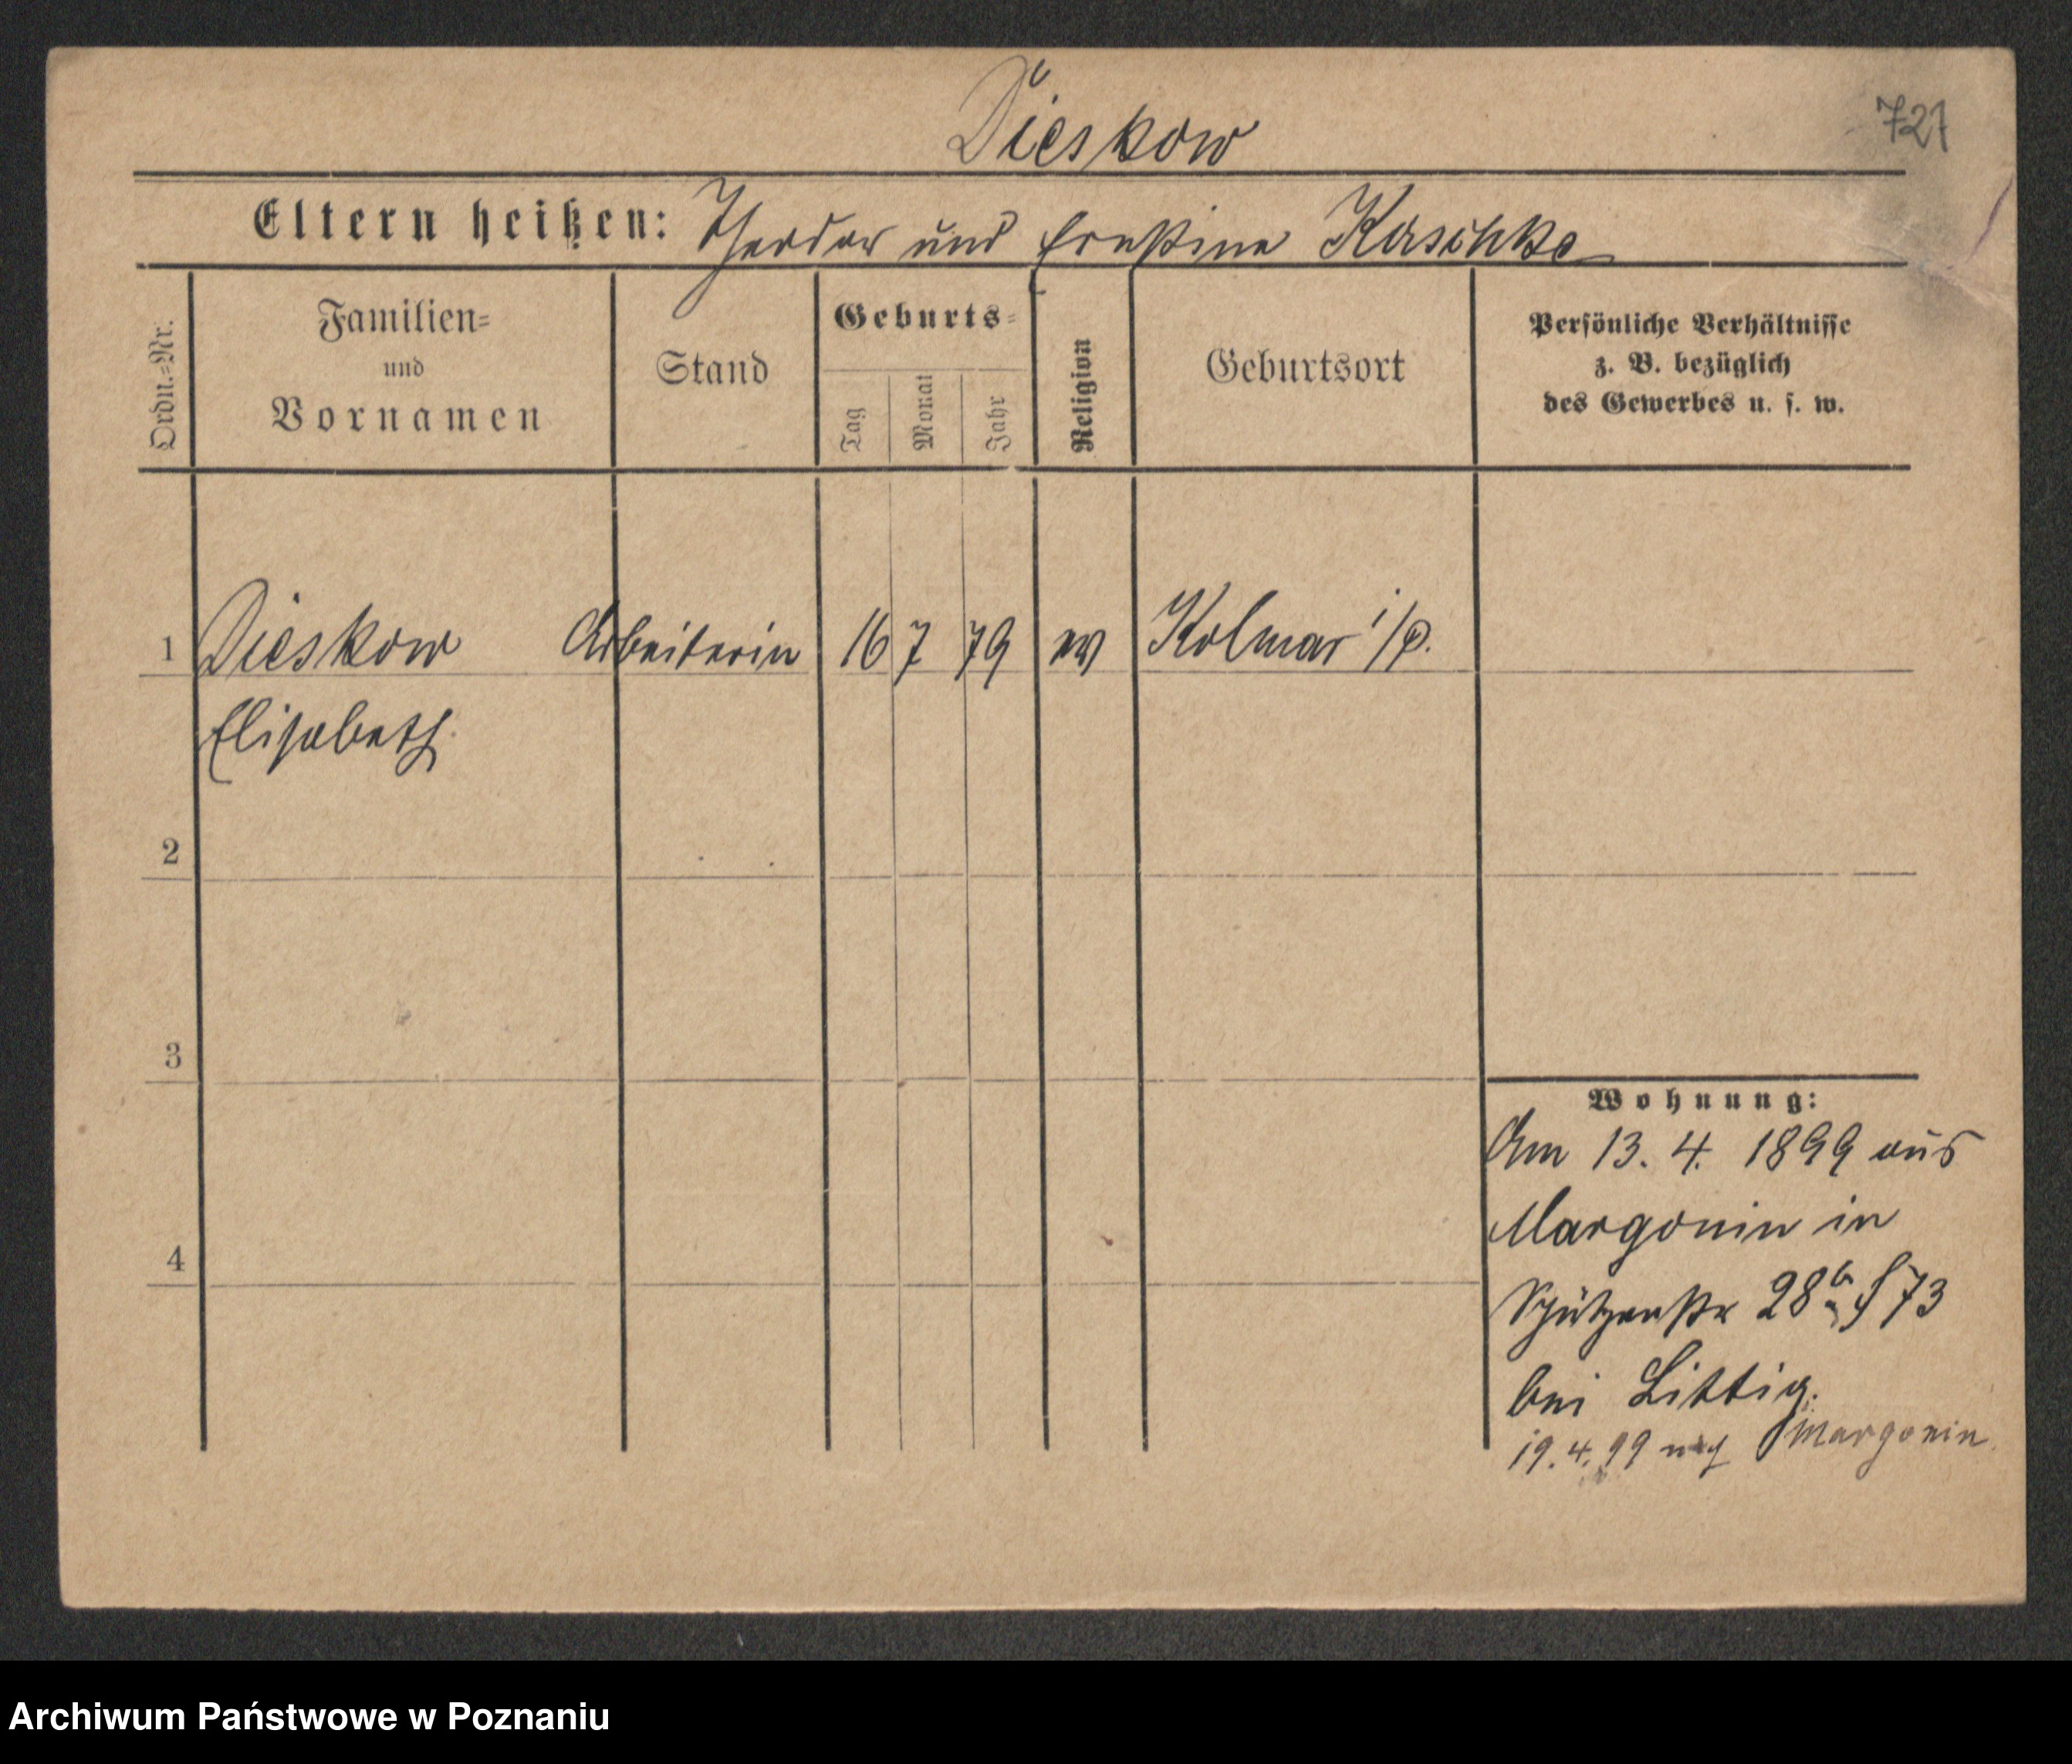 Dieskow
721
Eltern heißen: Theodor und Ernstine Kaschke
Ordn.=Nr.
Familien=
und
Vornamen
Stand
Geburts=
Tag
Monat
Jahr
Religion
Geburtsort
Persönliche Verhältnisse
z. B. bezüglich
des Gewerbes u. s. w.
1 Dieskow Arbeiterin 16 7 79 ev Kolmar i/P.
Elisabeth
2
3
4
Wohnung:
Am 13. 4. 1899 aus
Margonin in
Schützenstr 28 73
bei Littig.
19.4.99 nach Margonin
Archiwum Państwowe w Poznaniu